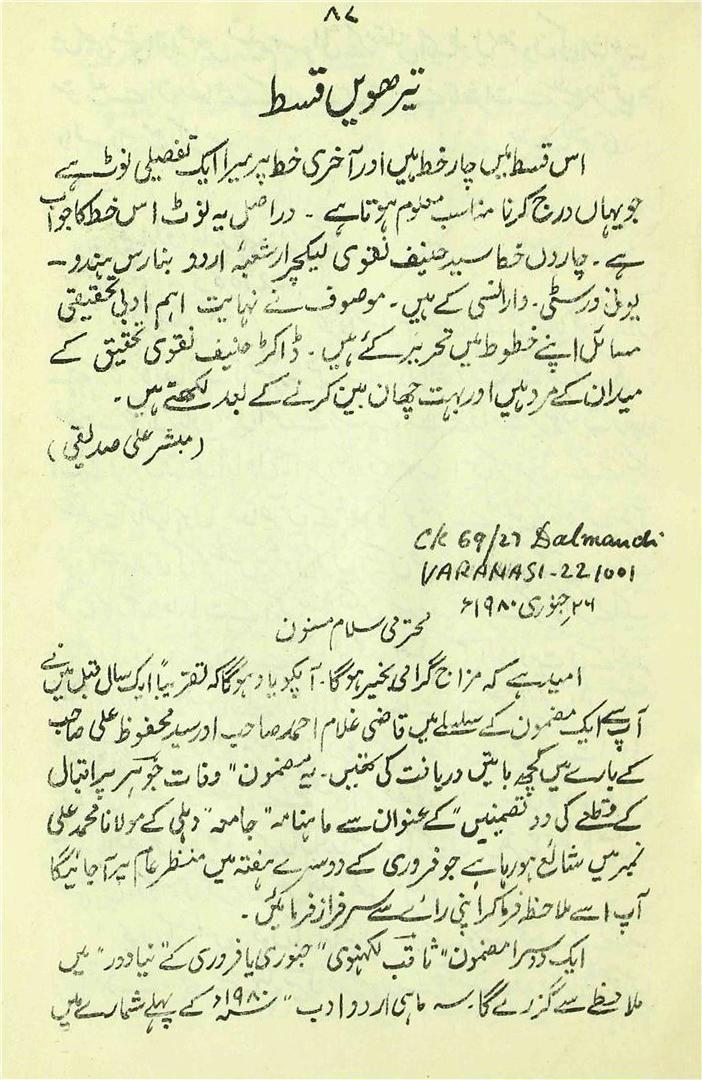 ۸۷
تیرھویں قسط
اس قسط میں چار خط ہیں اور آخری خط پر میرا ایک تفصیلی نوٹ ہے
جو یہاں درج کرنا مناسب معلوم ہوتا ہے ۔ دراصل یہ نوٹ اس خط کا جواب
ہے ۔ چاروں خط سید حنیف نقوی لیکچرار شعبۂ اردو بنارس ہندو ـ
یونی ورسٹی ۔ وارانسی کے ہیں ۔ موصوف نے نہایت اہم ادبی تحقیقی
مسائل اپنے خطوط میں تحریر کئے ہیں ۔ ڈاکٹر حنیف نقوی تحقیق کے
میدان کے مرد ہیں اور بہت چھان بین کرنے کے بعد لکھتے ہیں ۔
(مبشر علی صدیقی)
Ck 69/27 Dalmandi
VARANASI-221001
۲۶ جنوری ۱۹۸۰ء
محترمی سلام مسنون
امید ہے کہ مزاج گرامی بخیر ہوگا ۔ آپکو یاد ہوگا کہ تقریباً ایک سال قبل میں نے
آپ سے ایک مضمون کے سلسلے میں قاضی غلام احمد صاحب اور سید محفوظ علی صاحب
کے بارے میں کچھ باتیں دریافت کی تھیں ۔ یہ مضمون " وفات جوہر پر اقبال
کے قطعے کی دو تضمینیں " کے عنوان سے ماہنامہ " جامعہ " دہلی کے مولانا محمد علی
نمبر میں شائع ہو رہا ہے جو فروری کے دوسرے ہفتہ میں منظر عام پر آجائیگا
آپ اسے ملاحظہ فرما کر اپنی رائے سے سرفراز فرمائیں ۔
ایک دوسرا مضمون " ثاقب لکھنوی " جنوری یا فروری کے " نیا دور " میں
ملاحظے سے گزرے گا ۔ سہ ماہی اردو ادب " سنہ ۱۹۸۰ء کے پہلے شمارے میں